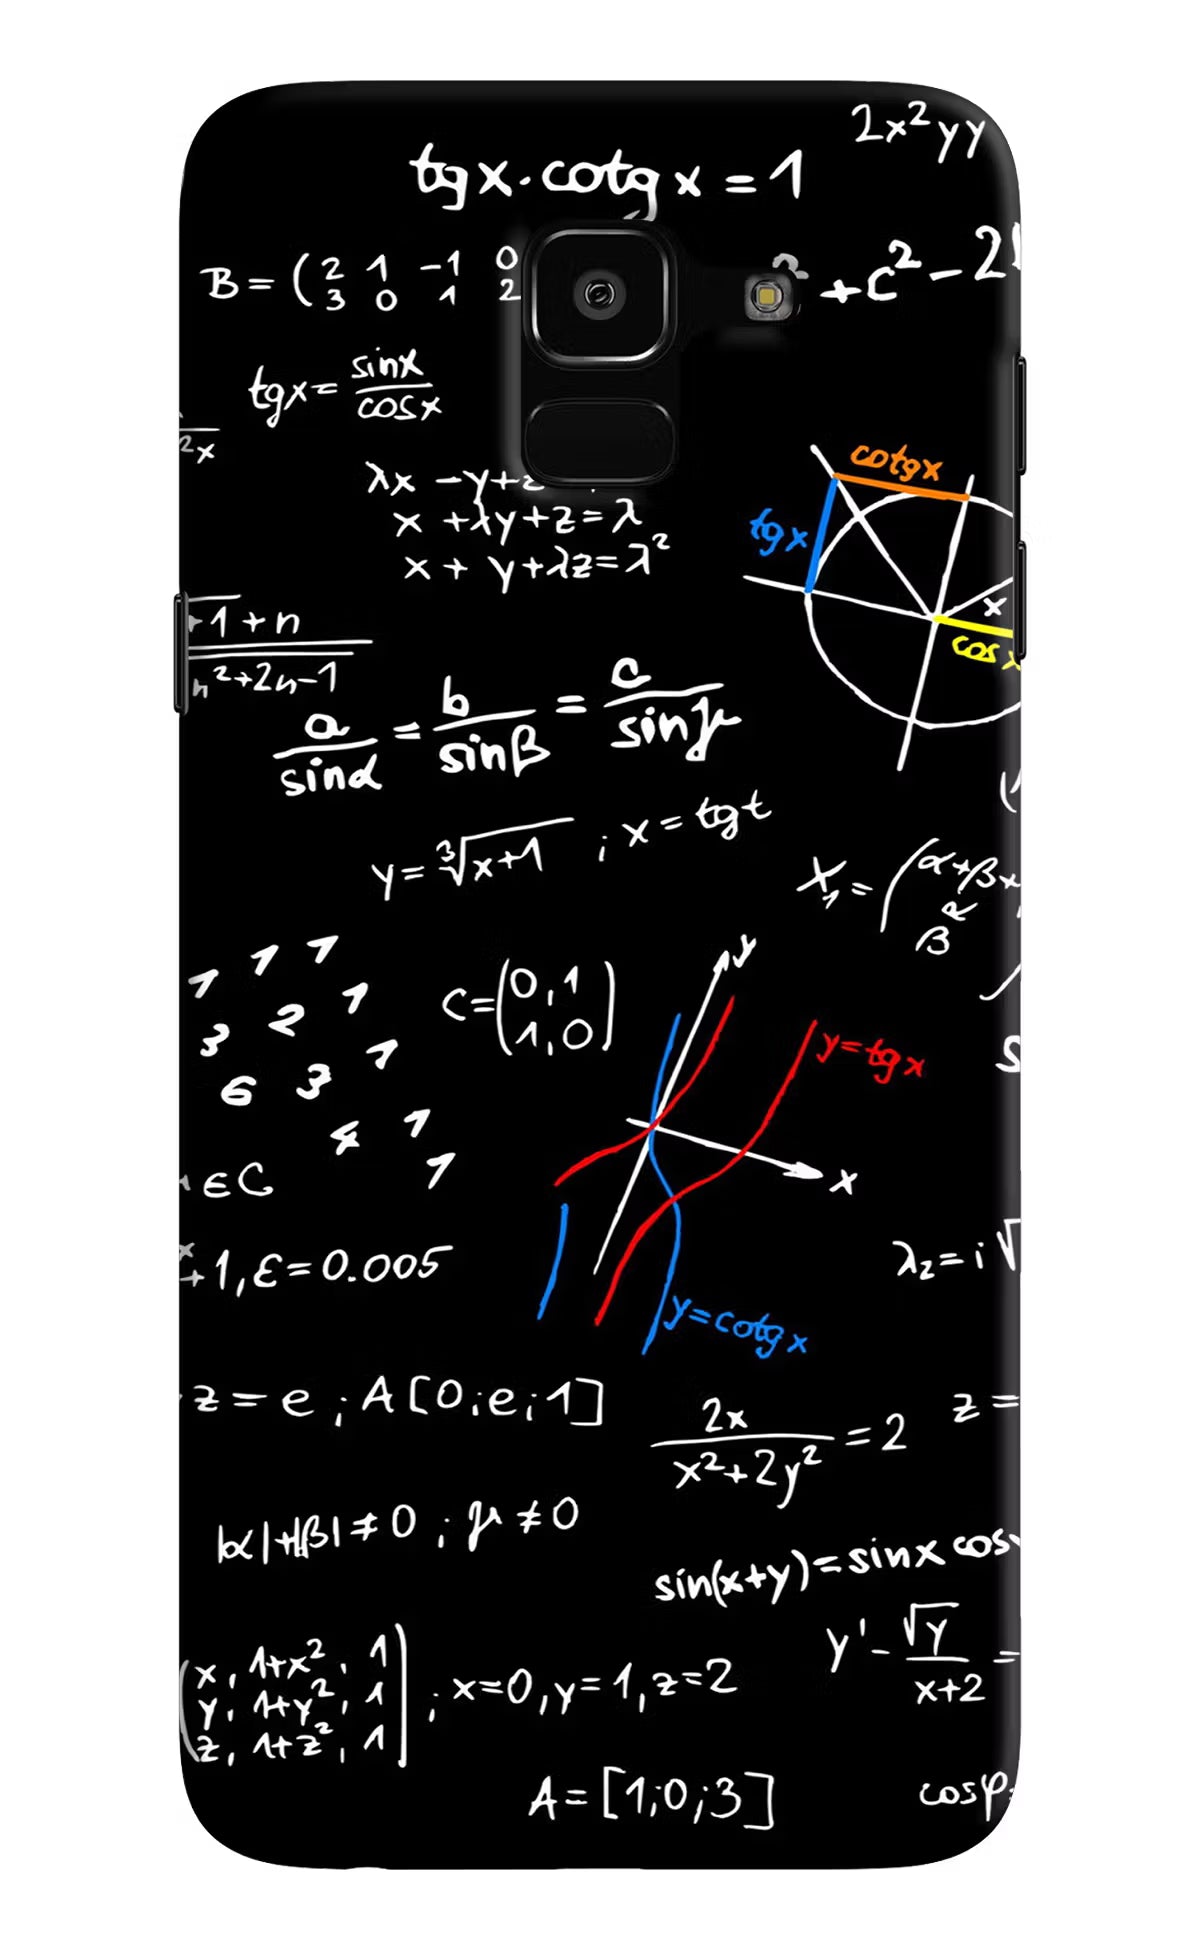 2x²yy
tgx·cotgx=1
B=(2 1 -1 0
3 0 1 2
+c²-2
tgx=sinx/cosx
2x
cotgx
tgx
x
cosx
λx-y+z
x+λy+z=λ
x+y+λz=λ²
+1+n
n²+2n-1
a/sinα=b/sinβ=c/sinγ
y=∛x+1 ; x=tgt
X₁=(α+βx
β R
1 1 1
3 2 1
6 3 1
4 1
1
C=(0,1
1,0)
y
y=tgx
x
y=cotgx
εC
+1,ε=0.005
λ₂=i√
z=e ; A[0;e;1]
2x/x²+2y²=2
z=
|α|+|β|≠0 ; μ≠0
sin(x+y)=sinx cos
y'-√y/x+2=
x, 1+x², 1
y, 1+y², 1
z, 1+z², 1
; x=0,y=1,z=2
A=[1;0;3]
cosφ=